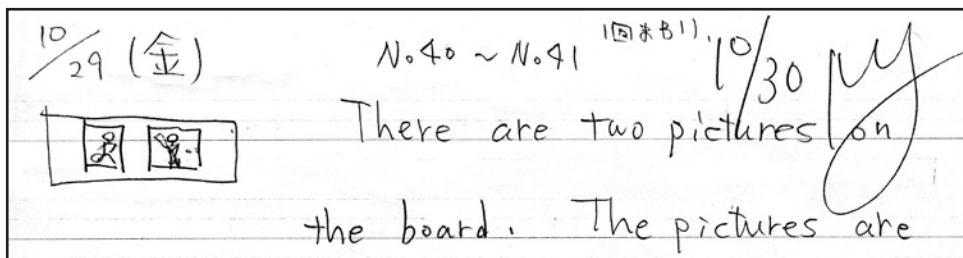 10/29 (金) No.40 ~ No.41 10/30
There are two pictures on
the board. The pictures are